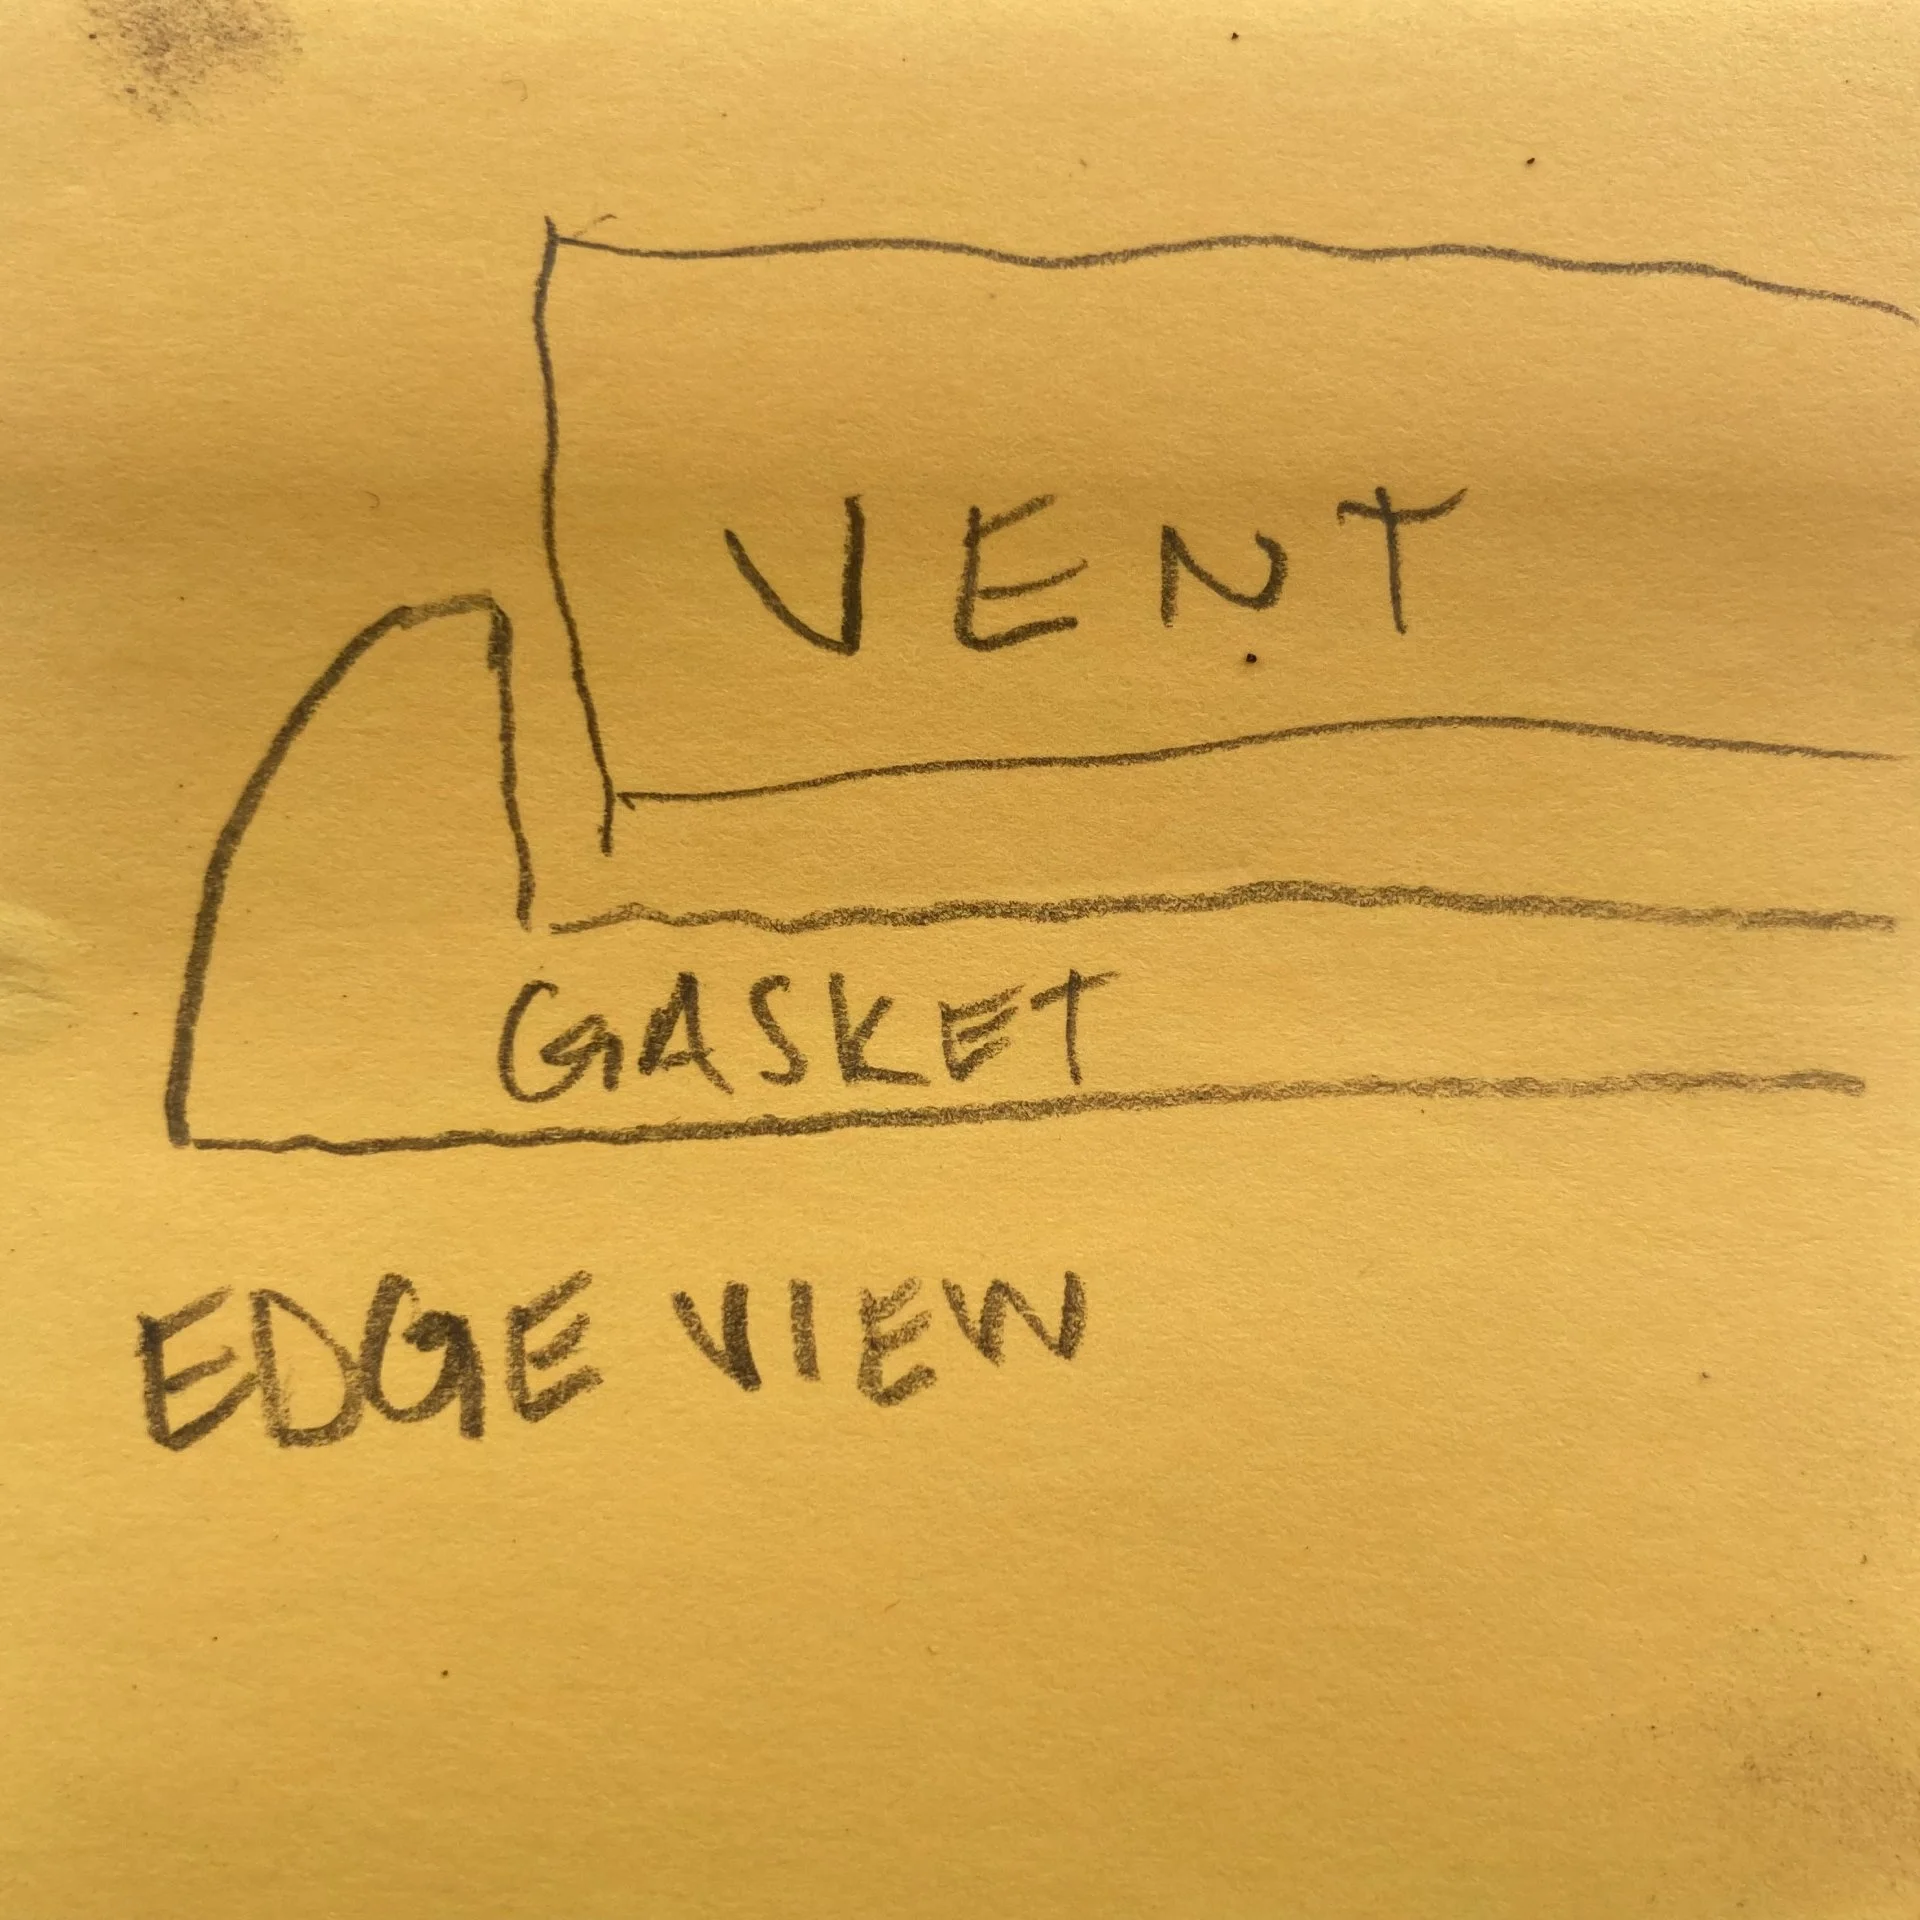 VENT
GASKET
EDGE VIEW